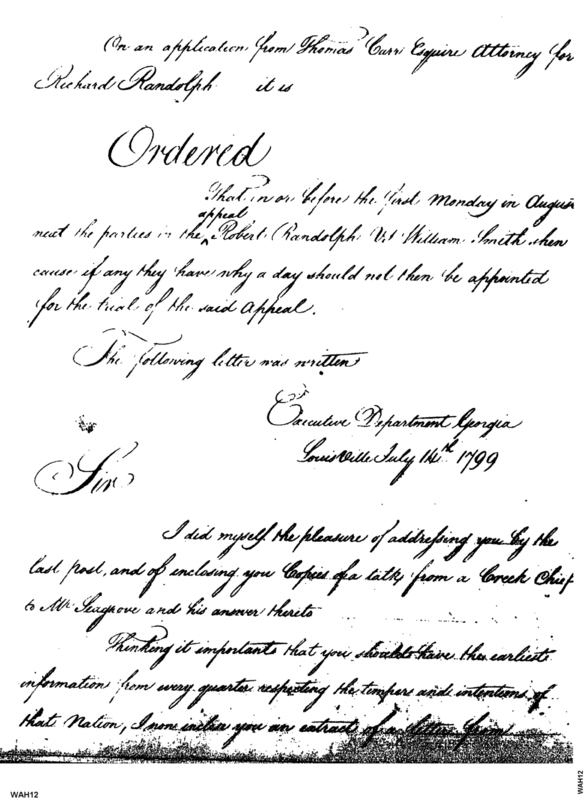 On an application from Thomas Carr Esquire Attorney for
Richard Randolph it is
Ordered
That in or before the first Monday in Augus
appeal
next the parties in the ‸ Robert Randolph Vs William Smith shew
cause if any they have why a day should not then be appointed
for the trial of the said Appeal.
The following letter was written
Executive Department Georgia
Louisville July 14th 1799
Sir
I did myself the pleasure of addressing you by the
last post, and of enclosing you Copies of a talk from a Creek Chief
to Mr Seagrove and his answer thereto
Thinking it important that you should have the earliest
information from every quarter respecting the tempers and intentions of
that Nation, I now inclose you an extract of a letter from
WAH12
WAH12